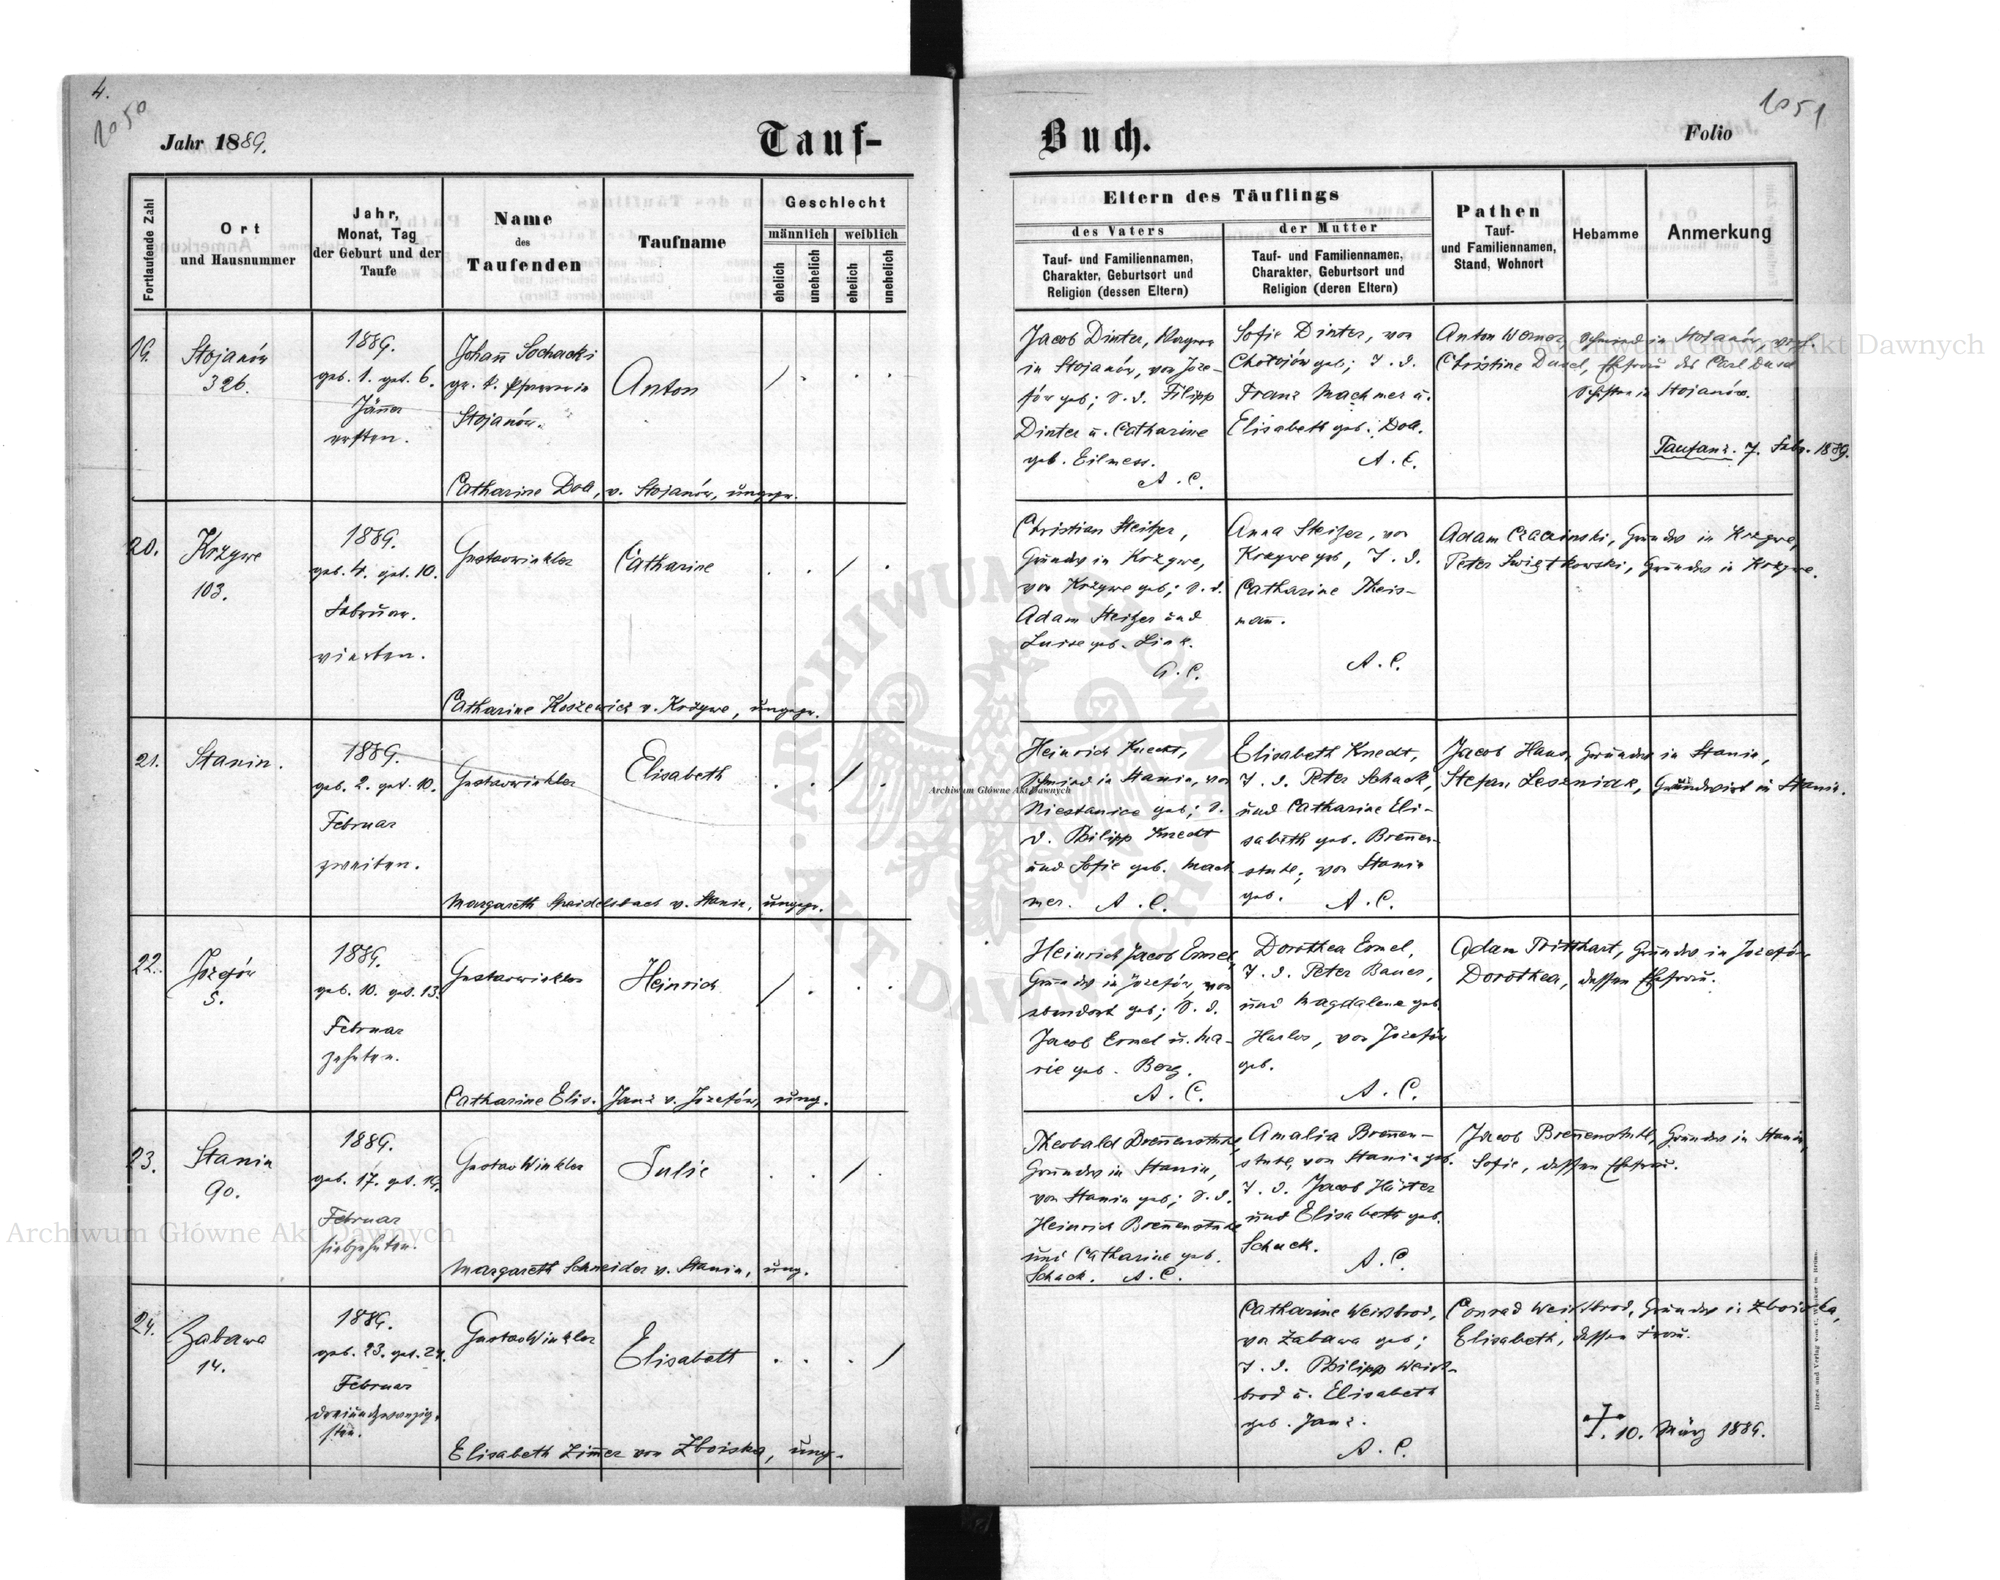 4.
1050
Jahr 1889.
Tauf-
Fortlaufende Zahl
Ort
und Hausnummer
Jahr,
Monat, Tag
der Geburt und der
Taufe
Name
des
Taufenden
Taufname
Geschlecht
männlich
weiblich
ehelich
unehelich
ehelich
unehelich
19.
Stojanów
326.
1889.
geb. 1. get. 6.
Jänner
ersten.
Johan̅ Sochacki
gr. k. Pfarrer in
Stojanów.
Anton
Catharine Doll, v. Stojanów, ungepr.
20.
Krzywe
103.
1889.
geb. 4. get. 10.
Februar.
vierten.
Gustav Winkler
Catharine
Catharine Koszewicz v. Krzywe, ungepr.
21.
Stanin.
1889.
geb. 2. get. 10.
Februar
zweiten.
Gustav Winkler
Elisabeth
Margareth v. Stanin, ungepr.
22.
Józefów
5.
1889.
geb. 10. get. 13.
Februar
zehnten.
Gustav Winkler
Heinrich
Catharine Elis. Janz v. Józefów, ung.
23.
Stanin
90.
1889.
geb. 17. get. 19.
Februar
siebzehnten.
Gustav Winkler
Julie
Margareth Schneider v. Stanin, ung.
24.
Zabawa
14.
1889.
geb. 23. get. 24.
Februar
dreiundzwanzig-
sten.
Gustav Winkler
Elisabeth
Elisabeth Zim̅er von Zboiska, ung.
1051
Buch.
Folio
Eltern des Täuflings
des Vaters
der Mutter
Tauf- und Familiennamen,
Charakter, Geburtsort und
Religion (dessen Eltern)
Tauf- und Familiennamen,
Charakter, Geburtsort und
Religion (deren Eltern)
Pathen
Tauf-
und Familiennamen,
Stand, Wohnort
Hebamme
Anmerkung
Jacob Dinter, Wagner
in Stojanów, von Józe-
fów geb; S. d. Filipp
Dinter u. Catharine
geb. Eilmess.
A. C.
Sofie Dinter, von
geb; T. d.
Franz Machmer u.
Elisabeth geb. Doll.
A. C.
Anton Werner, Schmied in Stojanów, verh.
Christine Dusel, Ehefrau des Carl Dusel
Schusters in Stojanów.
Taufanz. 7. Febr. 1889.
Christian Steitzer,
Grundw in Krzywe,
von Krzywe geb; S. d.
Adam Steitzer und
Luise geb. Link.
A. C.
Anna Steitzer, von
Krzywe geb, T. d.
Catharine Theis-
man̅.
A. C.
Adam Grundw in Krzywe,
Peter Swigtkowski, Grundw in Krzywe.
Heinrich Knecht,
Schmied in Stanin, von
Niestanice geb; S.
d. Philipp Knecht
und Sofie geb. Mach
mer. A. C.
Elisabeth Knecht,
T. d. Peter Schack,
und Catharine Eli-
sabeth geb. Bren̅en-
stuhl; von Stanin
geb. A. C.
Jacob Haus, Grundw in Stanin,
Stefan Leszniak, Grundwirt in Stanin.
Heinrich Jacob Ermel,
Grundw in Józefów, von
ebendort geb; S. d.
Jacob Ermel u. Ma-
rie geb. Berg.
A. C.
Dorothea Ermel,
T. d. Peter Bauer,
und Magdalena geb.
Harlos, von Józefów
geb.
A. C.
Adam Tritthart, Grundw in Józefów
Dorothea, dessen Ehefrau.
Theobald Bren̅enstuhl,
Grundw in Stanin,
von Stanin geb; S. d.
Heinrich Bren̅enstuhl
und Catharine geb.
Schack. A. C.
Amalia Bren̅en-
stuhl, von Stanin geb.
T. d. Jacob Härter
und Elisabeth geb.
Schack.
A. C.
Jacob Bren̅enstuhl, Grundw in Stanin,
Sofie, dessen Ehefrau.
Catharine Weißbrod,
von Zabawa geb;
T. d. Philipp Weiß-
brod u. Elisabeth
geb. Janz.
A. C.
Conrad Weißbrod, Grundw in Zboiska,
Elisabeth, dessen Frau.
10. März 1889.
Archiwum Główne Akt Dawnych
Archiwum Główne Akt Dawnych
Archiwum Główne Akt Dawnych
ARCHIWUM GŁÓWNE AKT DAWNYCH